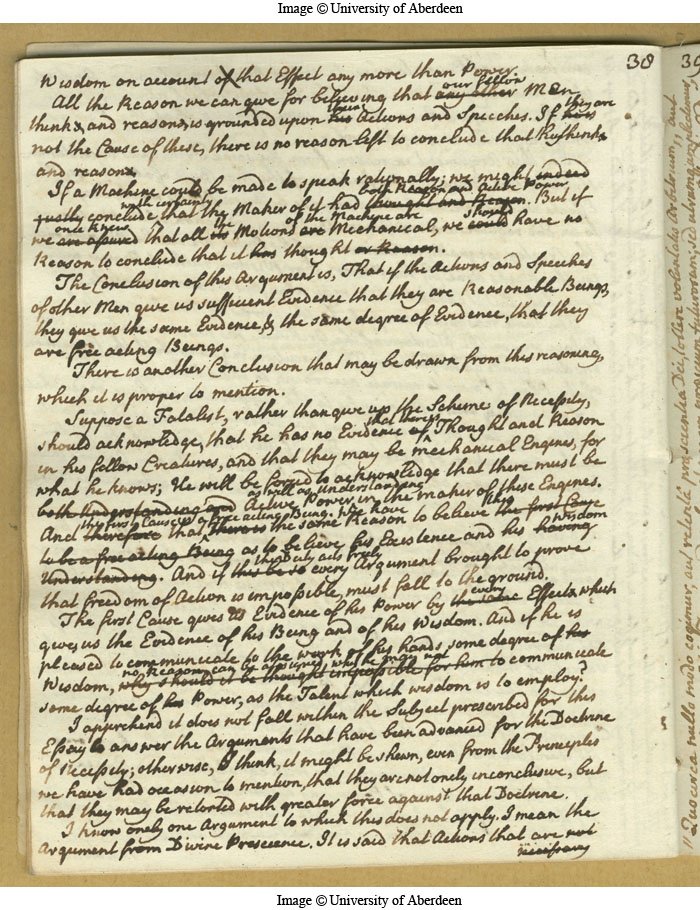 Image © University of Aberdeen
38
Wisdom on account of that Effect any more than Power.
All the Reason we can give for believing that any other our fellow Men
thinks, and reasons, is grounded upon his their Actions and Speeches. If he is they are
not the Cause of these, there is no reason left to conclude that they think
and reason.
If a Machine could be made to speak rationally; we might indeed
justly conclude with certainty that the Maker of it had thought and Reason both Reason and Active Power. But if
we are assured once knew that all its the Motions of the Machine are Mechanical, we could should have no
Reason to conclude that it has thought or Reason.
The Conclusion of this Argument is, That if the Actions and Speeches
of other Men give us sufficient Evidence that they are Reasonable Beings,
they give us the same Evidence, & the same degree of Evidence, that they
are free acting Beings.
There is another Conclusion that may be drawn from this reasoning,
which it is proper to mention.
Suppose a Fatalist, rather than give up the Scheme of Necessity,
should acknowledge, that he has no Evidence of that there is Thought and Reason
in his fellow Creatures, and that they may be mechanical Engines, for
what he knows; He will be forced to acknowledge that there must be
both Understanding and Active Power as well as understanding in the maker of these Engines.
And therefore that the first Cause is a free acting Being. We have there is the same Reason to believe this the first Cause
to be a free acting Being as to believe his Existence and his having Wisdom
Understanding. And if this be so the Deity acts freely every Argument brought to prove
that freedom of Action is impossible, must fall to the ground.
The First Cause gives us Evidence of his Power by the same every Effect which
gives us the Evidence of his Being and of his Wisdom. And if he is
pleased to communicate to the work of his hands, some degree of his
Wisdom, why should it be thought impossible for him no Reason can be assigned, why he may not to communicate
some degree of his Power, as the Talent which wisdom is to employ?
I apprehend it does not fall within the Subject prescribed for this
Essay to answer the Arguments that have been advanced for the Doctrine
of Necessity; otherwise, I think, it might be shewn, even from the Principles
we have had occasion to mention, that they are not onely inconclusive, but
that they may be retorted with greater force against that Doctrine.
I know onely one Argument to which this does not apply. I mean the
Argument from Divine Prescience. It is said that Actions that are not
necessary
Image © University of Aberdeen